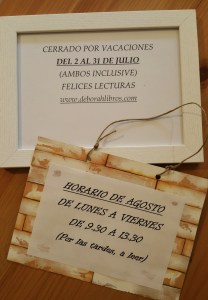 CERRADO POR VACACIONES
DEL 2 AL 31 DE JULIO
(AMBOS INCLUSIVE)
FELICES LECTURAS
www.deborahlibros.com
HORARIO DE AGOSTO
DE LUNES A VIERNES
DE 9.30 A 13.30
(Por las tardes, a leer)